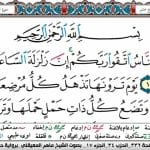 بِسْمِ اللَّهِ الرَّحْمَٰنِ الرَّحِيمِ
نَّاسُ اتَّقُوا رَبَّكُمْ إِنَّ زَلْزَلَةَ السَّاعَ
يَوْمَ تَرَوْنَهَا تَذْهَلُ كُلُّ مُرْضِعَ
وَتَضَعُ كُلُّ ذَاتِ حَمْلٍ حَمْلَهَا وَتَرَ
الجزء ١٧ بصوت الشيخ ماهر المعيقلي برواية